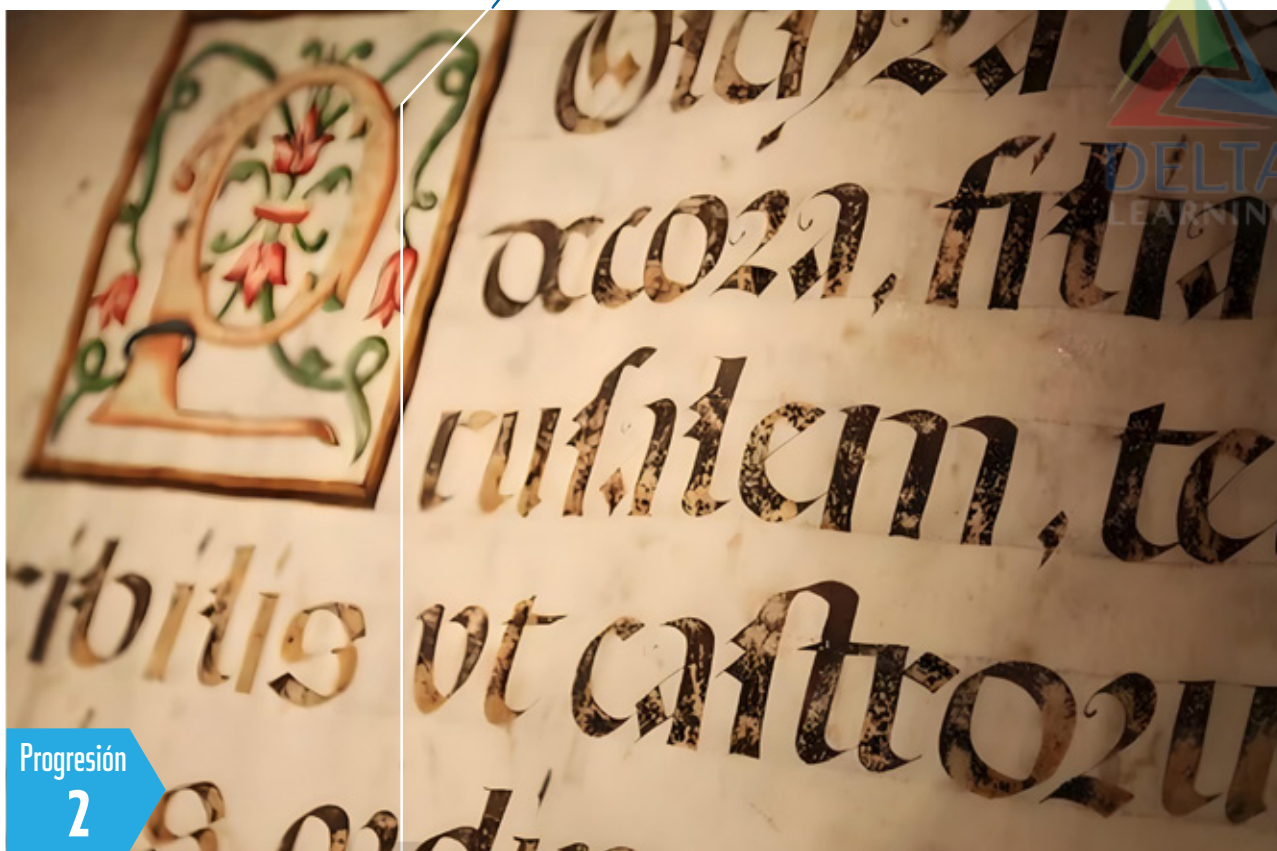 DELTA
LEARNING
decora, filia
rusalem, te
ribilis vt castroru
Progresión
2